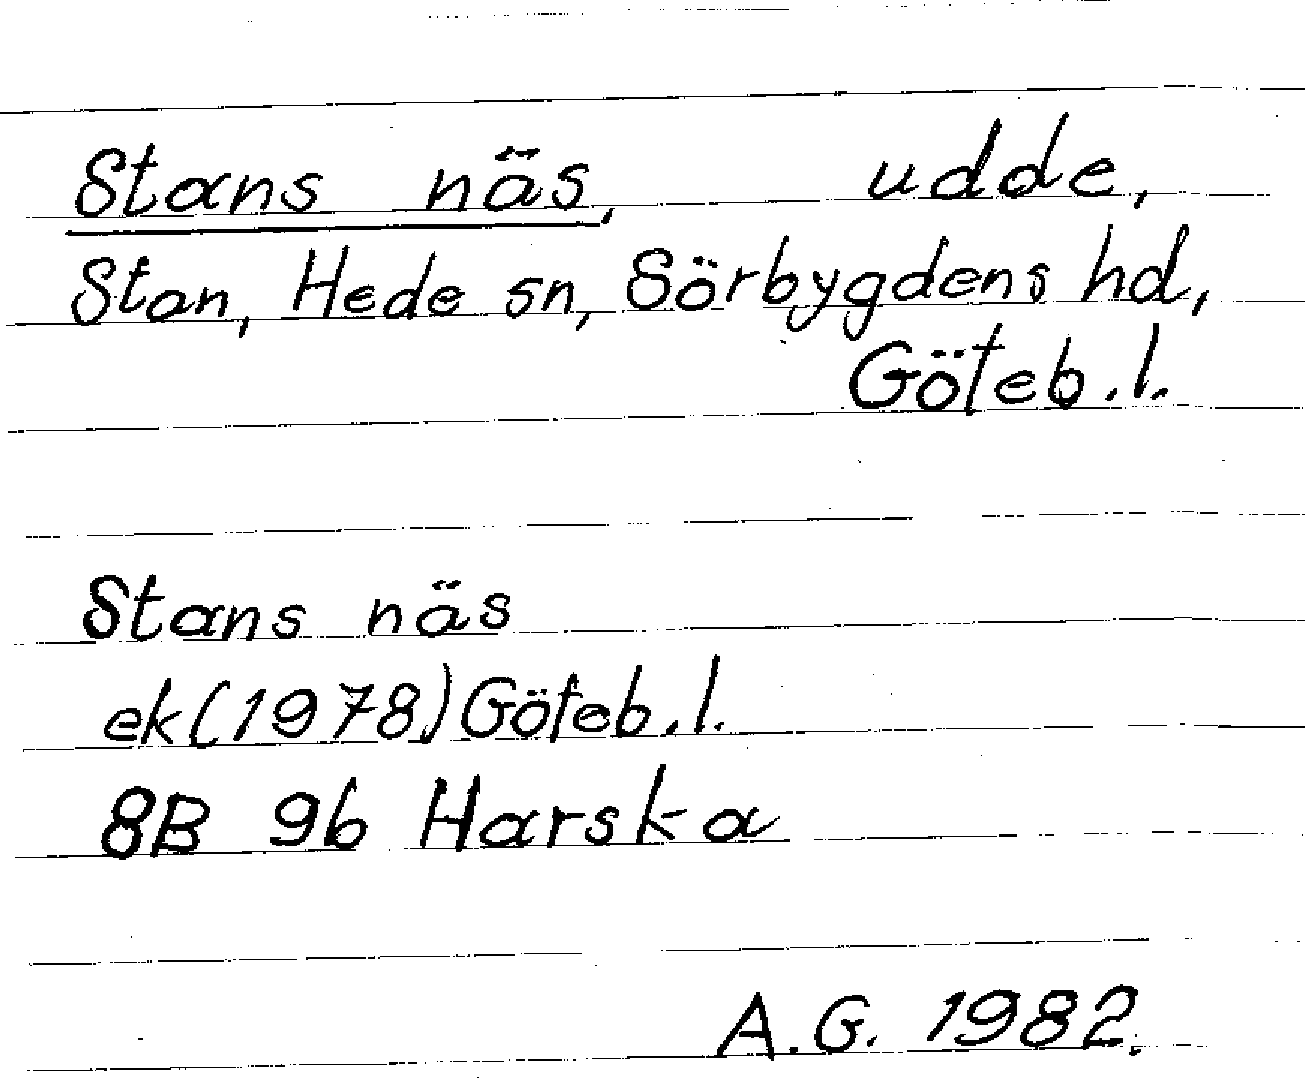 Stans näs, udde,
Stan, Hede sn, Sörbygdens hd,
Göteb.l.
Stans näs
ek(1978)Göteb.l.
8B 9b Harska
A.G. 1982.